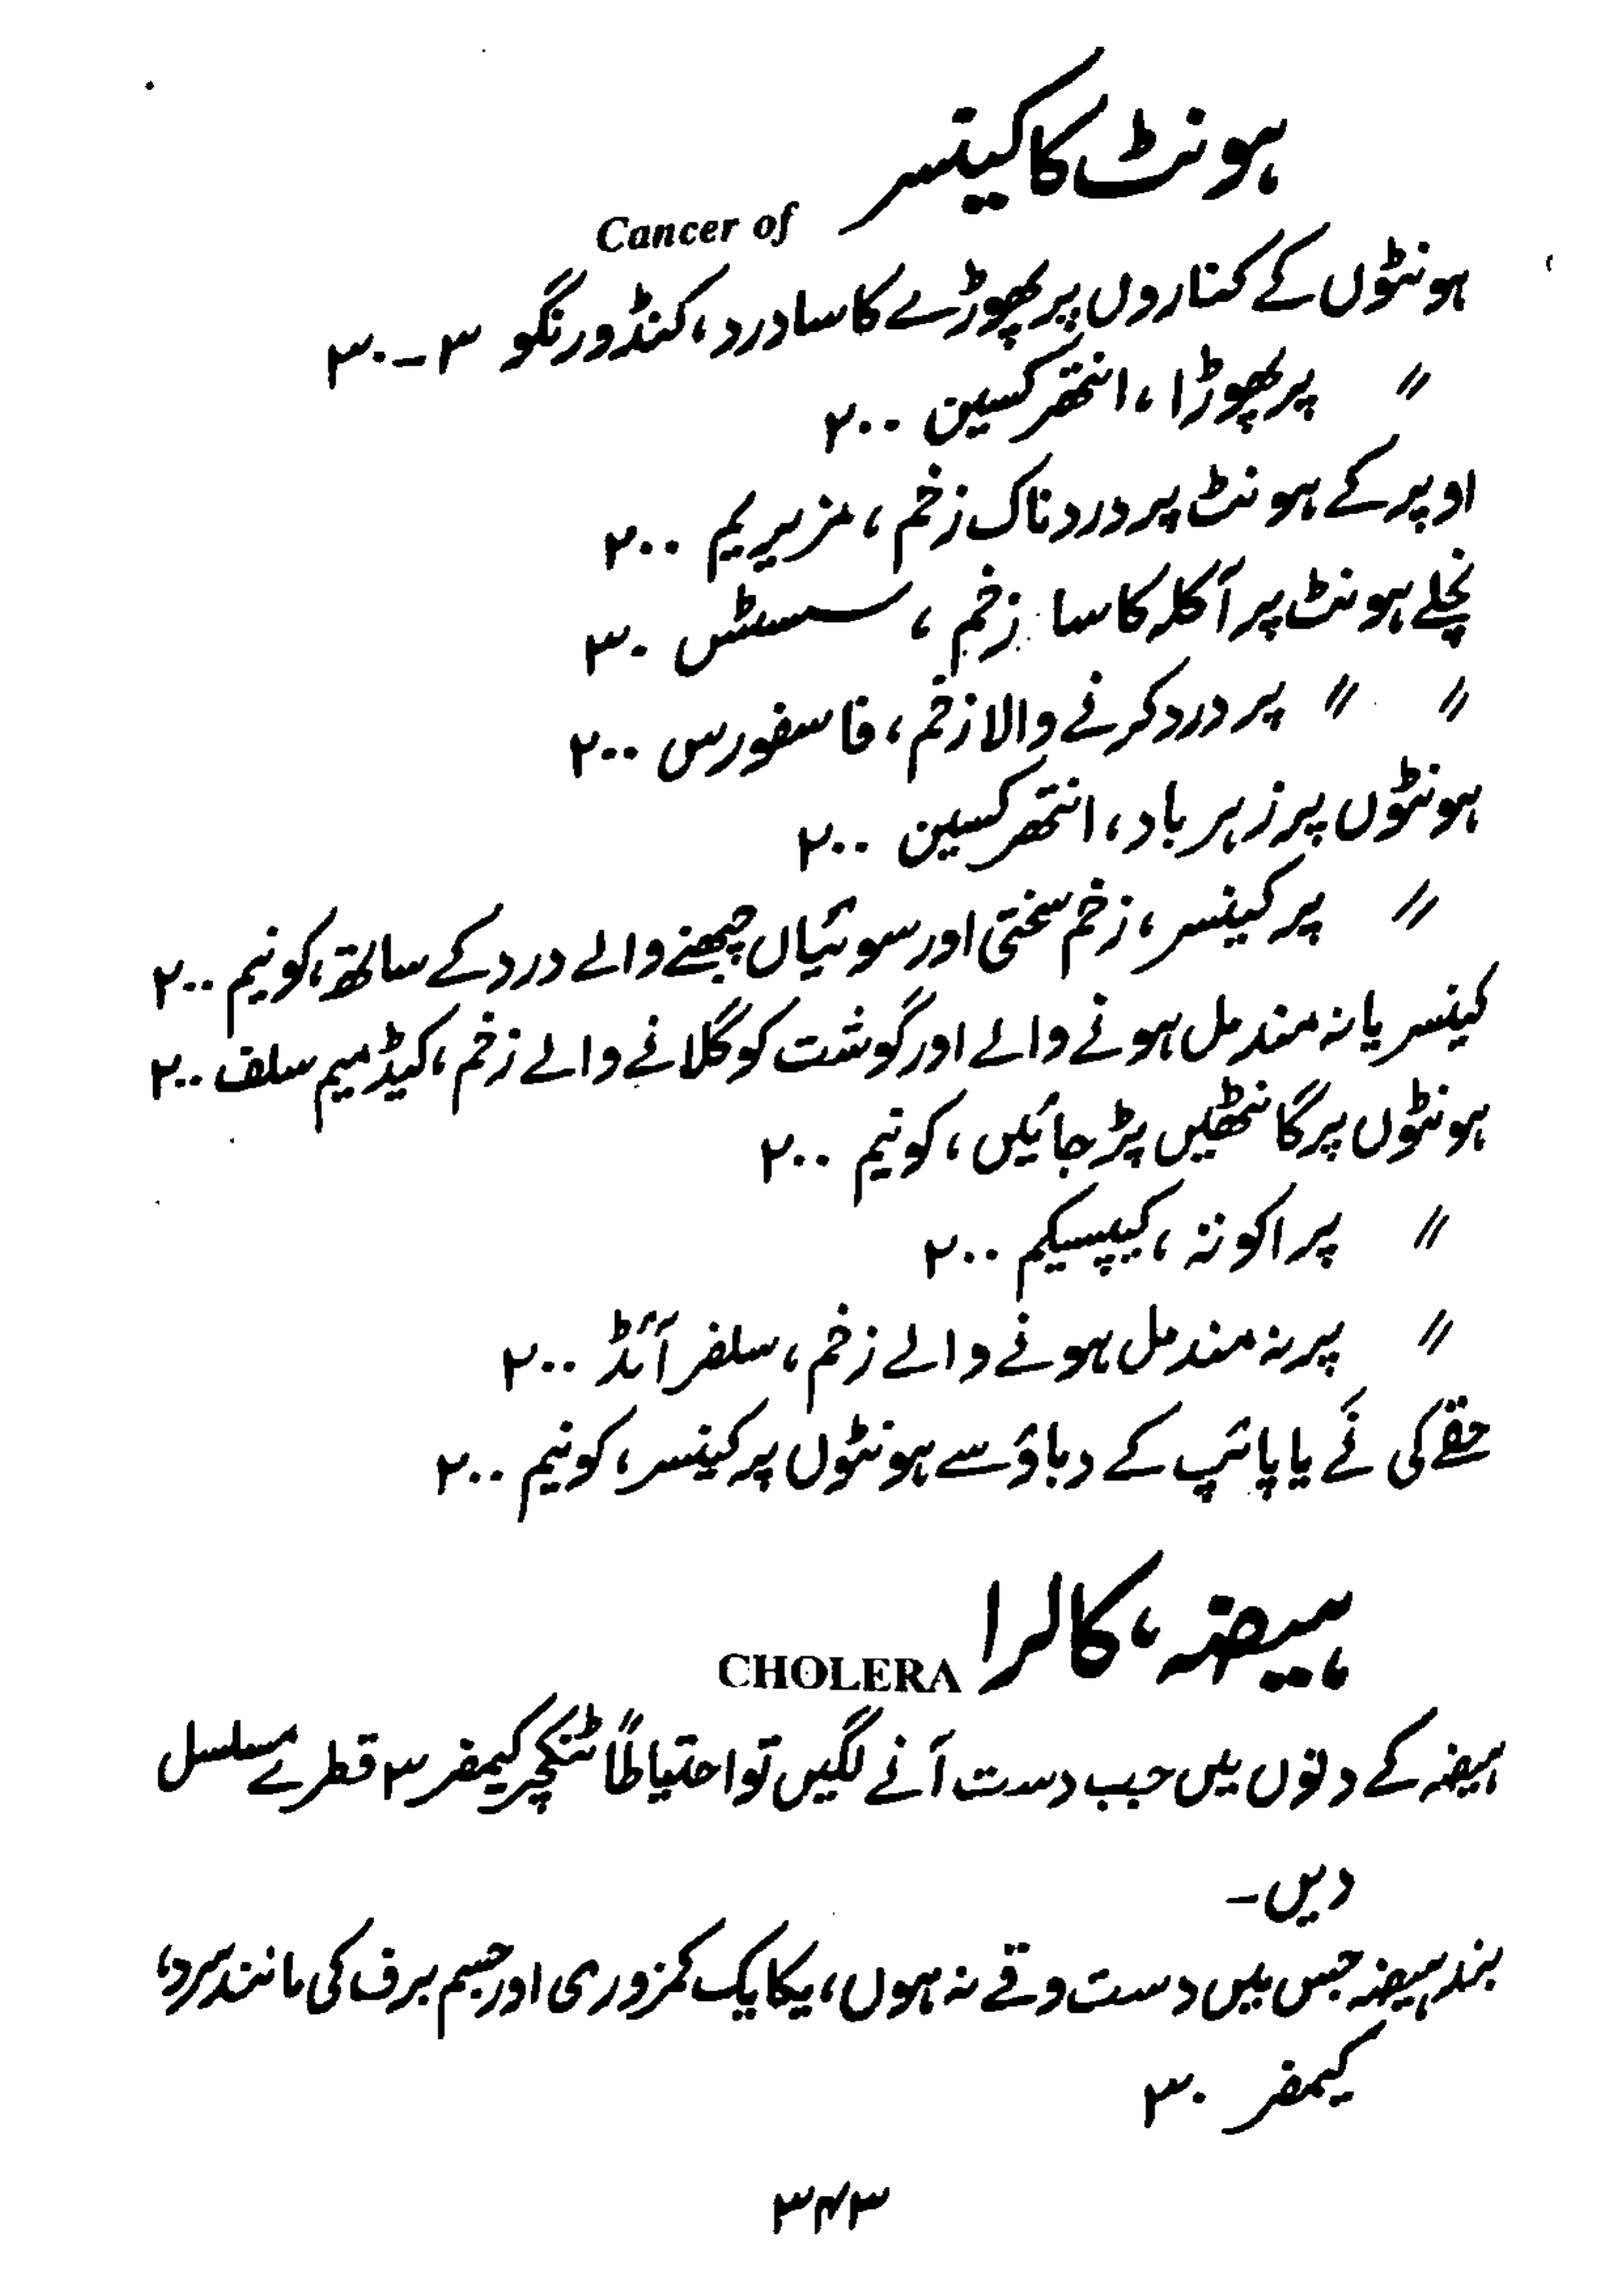 ہونٹ کا کینسر
Cancer of
ہونٹوں کے کناروں پر پھوڑے کا سا درد، کنڈورنگو ۳-۳۰
〃 پر پھوڑا، انتھرکسین ۲۰۰
اوپر کے ہونٹ پر دردناک زخم، مزیریم ۲۰۰
نچلے ہونٹ پر آکلہ کا سا زخم، سسٹس ۳۰
〃 〃 پر درد کرنے والا زخم، فاسفورس ۲۰۰
ہونٹوں پر زہر باد، انتھرکسین ۲۰۰
〃 پر کینسر، زخم سختی اور سوئیاں چبھنے والے درد کے ساتھ، کونیم ۲۰۰
کینسر یا نہ مندمل ہونے والے اور گوشت کو گلانے والے زخم، کیڈمیم سلف ۲۰۰
ہونٹوں پر گانٹھیں پڑ جائیں، کونیم ۲۰۰
〃 پر اکوتہ، کیپسیکم ۲۰۰
〃 پر نہ مندمل ہونے والے زخم، سلفر آئڈ ۲۰۰
حقے کی نَے یا پائپ کے دباؤ سے ہونٹوں پر کینسر، کونیم ۲۰۰
ہیضہ، کالرا CHOLERA
ہیضہ کے دنوں میں جب دست آنے لگیں تو احتیاطاً ٹنکچر کیمفر ۳ قطرے مسلسل
دیں۔
بند ہیضہ جس میں دست و قے نہ ہوں، یکایک کمزوری اور جسم برف کی مانند سرد،
کیمفر ۳۰
۳۴۳